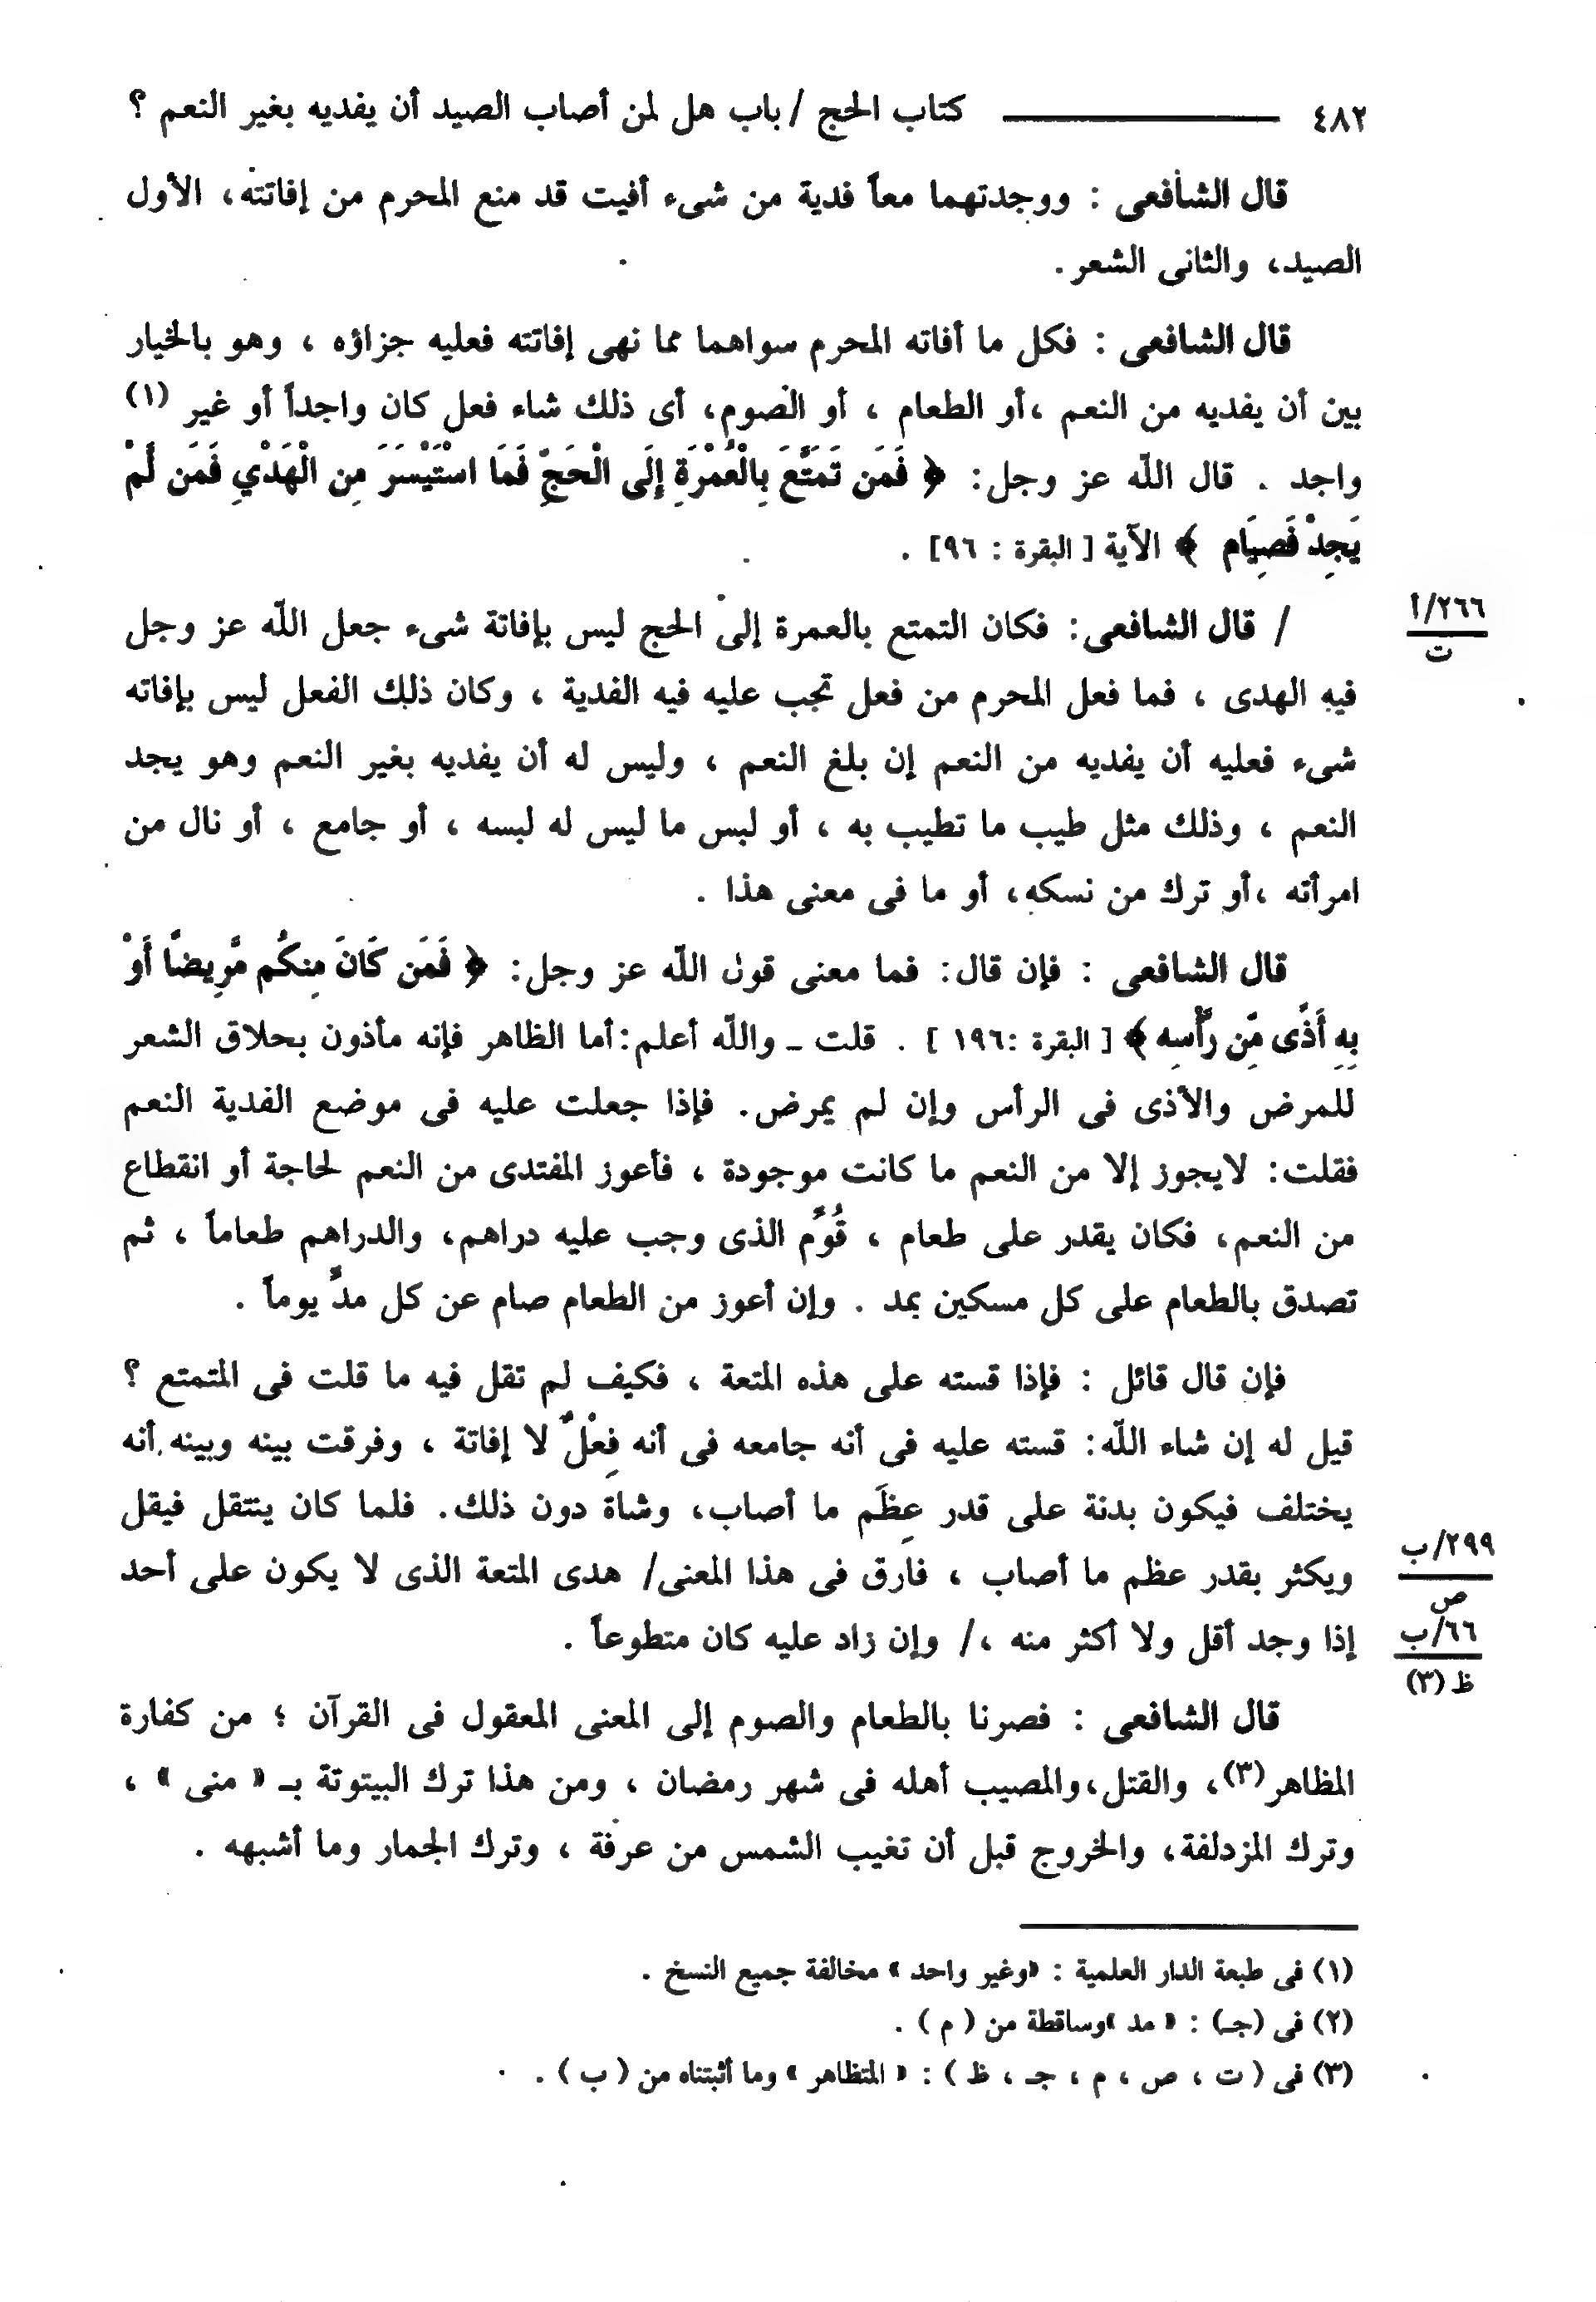 ٤٨٢ ــــــــ كتاب الحج / باب هل لمن أصاب الصيد أن يفديه بغير النعم ؟
قال الشافعى : ووجدتهما معاً فدية من شىء أفيت قد منع المحرم من إفاتته، الأول
الصيد، والثانى الشعر.
قال الشافعى : فكل ما أفاته المحرم سواهما مما نهى إفاتته فعليه جزاؤه ، وهو بالخيار
بين أن يفديه من النعم ،أو الطعام ، أو الصوم، أى ذلك شاء فعل كان واجداً أو غير (١)
واجد . قال اللّه عز وجل: ﴿ فَمَن تَمَتَّعَ بِالْعُمْرَةِ إِلَى الْحَجِّ فَمَا اسْتَيْسَرَ مِن الْهَدْيِ فَمَن لَّمْ
يَجِدْ فَصِيَام ﴾ الآية [ البقرة : ٩٦] .
/ قال الشافعى: فكان التمتع بالعمرة إلى الحج ليس بإفاتة شىء جعل اللّه عز وجل
٢٦٦/أ
ت
فيه الهدى ، فما فعل المحرم من فعل تجب عليه فيه الفدية ، وكان ذلك الفعل ليس بإفاته
شىء فعليه أن يفديه من النعم إن بلغ النعم ، وليس له أن يفديه بغير النعم وهو يجد
النعم ، وذلك مثل طيب ما تطيب به ، أو لبس ما ليس له لبسه ، أو جامع ، أو نال من
امرأته ،أو ترك من نسكه، أو ما فى معنى هذا .
قال الشافعى : فإن قال: فما معنى قول اللّه عز وجل: ﴿ فَمَن كَانَ مِنكُم مَّرِيضًا أَوْ
بِهِ أَذًى مِّن رَّأْسِه ﴾ [ البقرة :١٩٦ ] . قلت ـ واللّه أعلم:أما الظاهر فإنه مأذون بحلاق الشعر
للمرض والأذى فى الرأس وإن لم يمرض. فإذا جعلت عليه فى موضع الفدية النعم
فقلت: لايجوز إلا من النعم ما كانت موجودة ، فأعوز المفتدى من النعم لحاجة أو انقطاع
من النعم، فكان يقدر على طعام ، قُوِّم الذى وجب عليه دراهم، والدراهم طعاماً ، ثم
تصدق بالطعام على كل مسكين بمد . وإن أعوز من الطعام صام عن كل مدٍّ يوماً .
فإن قال قائل : فإذا قسته على هذه المتعة ، فكيف لم تقل فيه ما قلت فى المتمتع ؟
قيل له إن شاء اللّه: قسته عليه فى أنه جامعه فى أنه فِعْلٌ لا إفاتة ، وفرقت بينه وبينه أنه
يختلف فيكون بدنة على قدر عِظَم ما أصاب، وشاة دون ذلك. فلما كان ينتقل فيقل
ويكثر بقدر عظم ما أصاب ، فارق فى هذا المعنى/ هدى المتعة الذى لا يكون على أحد
٢٩٩/ب
ص
إذا وجد أقل ولا أكثر منه ،/ وإن زاد عليه كان متطوعاً .
٦٦/ب
ظ (٣)
قال الشافعى : فصرنا بالطعام والصوم إلى المعنى المعقول فى القرآن ؛ من كفارة
المظاهر(٣)، والقتل،والمصيب أهله فى شهر رمضان ، ومن هذا ترك البيتوتة بـ « منى » ،
وترك المزدلفة، والخروج قبل أن تغيب الشمس من عرفة ، وترك الجمار وما أشبهه .
(١) فى طبعة الدار العلمية : «وغير واحد » مخالفة جميع النسخ .
(٢) فى (جـ) : « مد »وساقطة من ( م ) .
(٣) فى ( ت ، ص ، م ، جـ ، ظ ) : « المتظاهر » وما أثبتناه من ( ب ) .